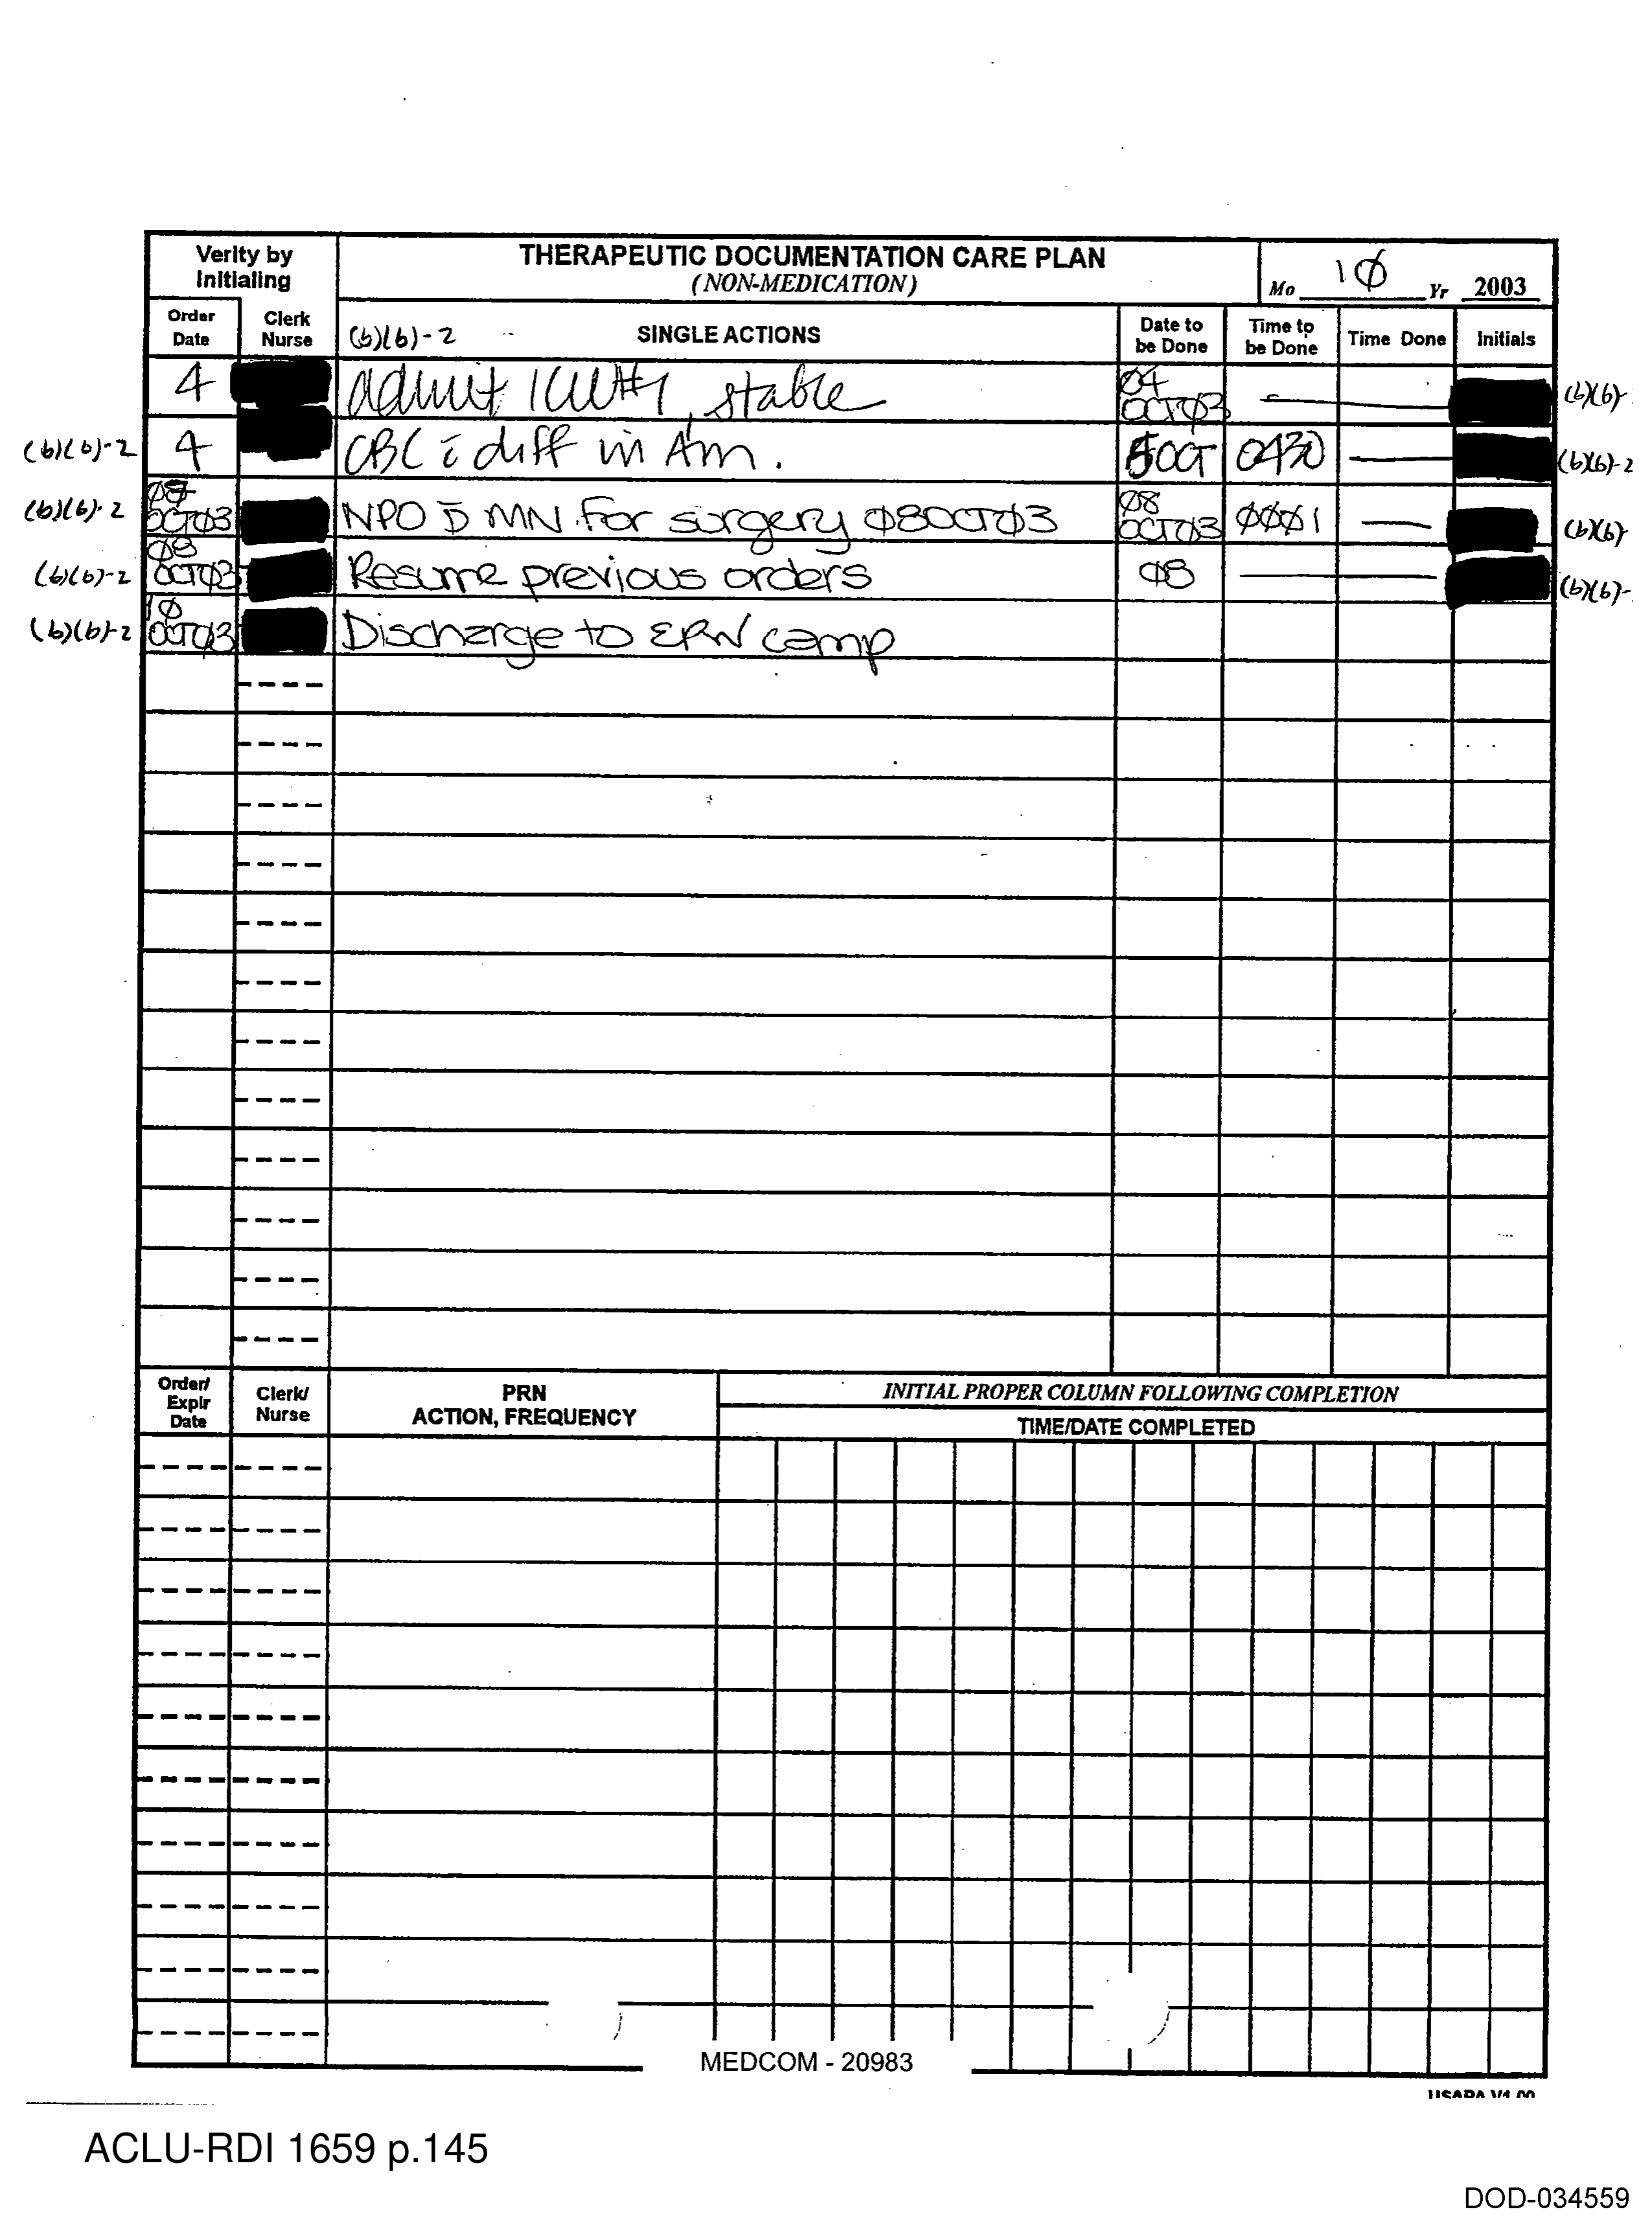 Verity by Initialing
THERAPEUTIC DOCUMENTATION CARE PLAN
(NON-MEDICATION)
Mo 1Ø Yr 2003
Order Date
Clerk Nurse
(b)(6)-2
SINGLE ACTIONS
Date to be Done
Time to be Done
Time Done
Initials
4 Admit ICW#1, stable 04 OCTØ3 (b)(6)-
(b)(6)-2 4 CBC c̄ diff in Am. 5OCT 0430 (b)(6)-2
(b)(6)-2 Ø7 OCTØ3 NPO p̄ MN. For surgery Ø8OCTØ3 Ø8 OCTØ3 ØØØ1 (b)(6)
(b)(6)-2 Ø8 OCTØ3 Resume previous orders Ø8 (b)(6)-
(b)(6)-2 1Ø OCTØ3 Discharge to EPW camp
Order/ Expir Date
Clerk/ Nurse
PRN
ACTION, FREQUENCY
INITIAL PROPER COLUMN FOLLOWING COMPLETION
TIME/DATE COMPLETED
MEDCOM - 20983
USAPA V1.00
ACLU-RDI 1659 p.145
DOD-034559